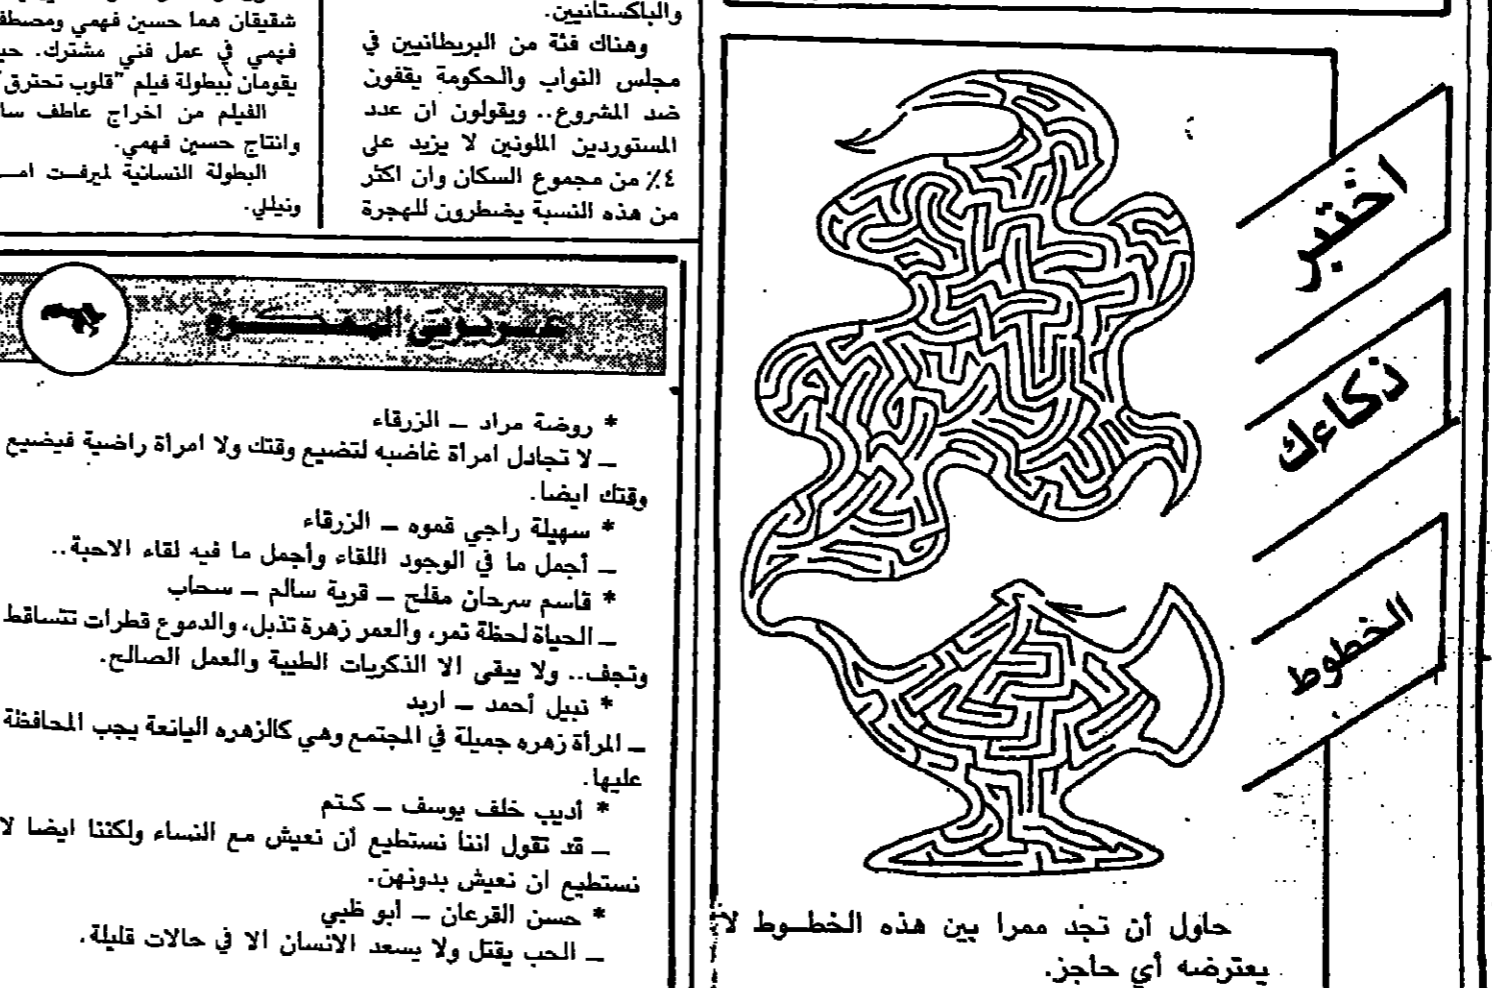 اختبر
ذكاءك
الخطوط
حاول أن تجد ممرا بين هذه الخطوط لا
يعترضه أي حاجز.
والباكستانيين.
وهناك فئة من البريطانيين في
مجلس النواب والحكومة يقفون
ضد المشروع.. ويقولون ان عدد
المستوردين الملونين لا يزيد على
٤٪ من مجموع السكان وان اكثر
من هذه النسبة يضطرون للهجرة
شقيقان هما حسين فهمي ومصطفى
فهمي في عمل فني مشترك. حيث
يقومان ببطولة فيلم "قلوب تحترق"
الفيلم من اخراج عاطف سا
وانتاج حسين فهمي.
البطولة النسائية لميرفت امـ
ونيللي.
* روضة مراد ــ الزرقاء
ــ لا تجادل امرأة غاضبه لتضيع وقتك ولا امرأة راضية فيضيع
وقتك ايضا.
* سهيلة راجي قموه ــ الزرقاء
ــ أجمل ما في الوجود اللقاء وأجمل ما فيه لقاء الاحبة..
* قاسم سرحان مفلح ــ قرية سالم ــ سحاب
ــ الحياة لحظة تمر، والعمر زهرة تذبل، والدموع قطرات تتساقط
وتجف.. ولا يبقى الا الذكريات الطيبة والعمل الصالح.
* نبيل أحمد ــ اربد
ــ المرأة زهره جميلة في المجتمع وهي كالزهره اليانعة يجب المحافظة
عليها.
* أديب خلف يوسف ــ كتم
ــ قد تقول اننا نستطيع أن نعيش مع النساء ولكننا ايضا لا
نستطيع ان نعيش بدونهن.
* حسن القرعان ــ أبو ظبي
ــ الحب يقتل ولا يسعد الانسان الا في حالات قليلة.